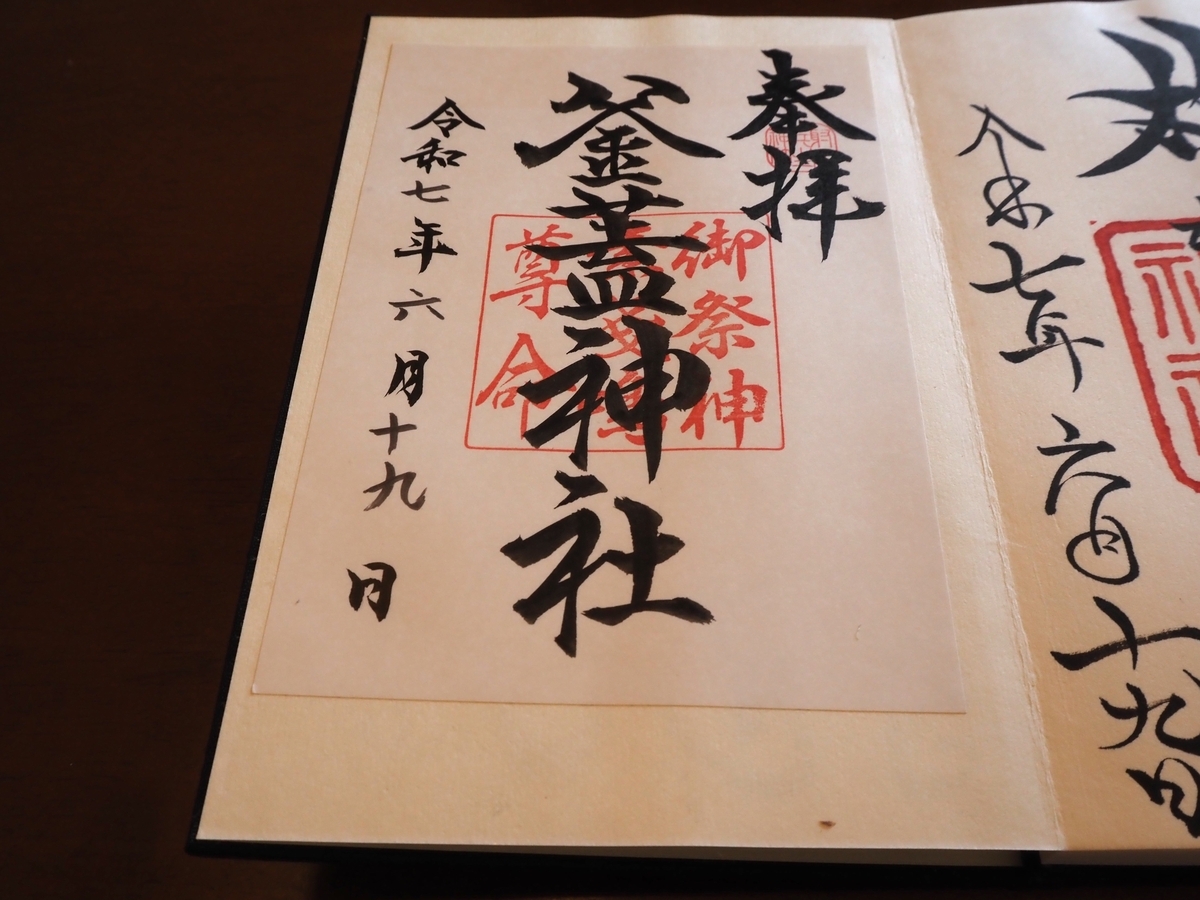 奉拝
釜蓋神社
御祭神
尊命
令和七年六月十九日
令和七年六月十九日